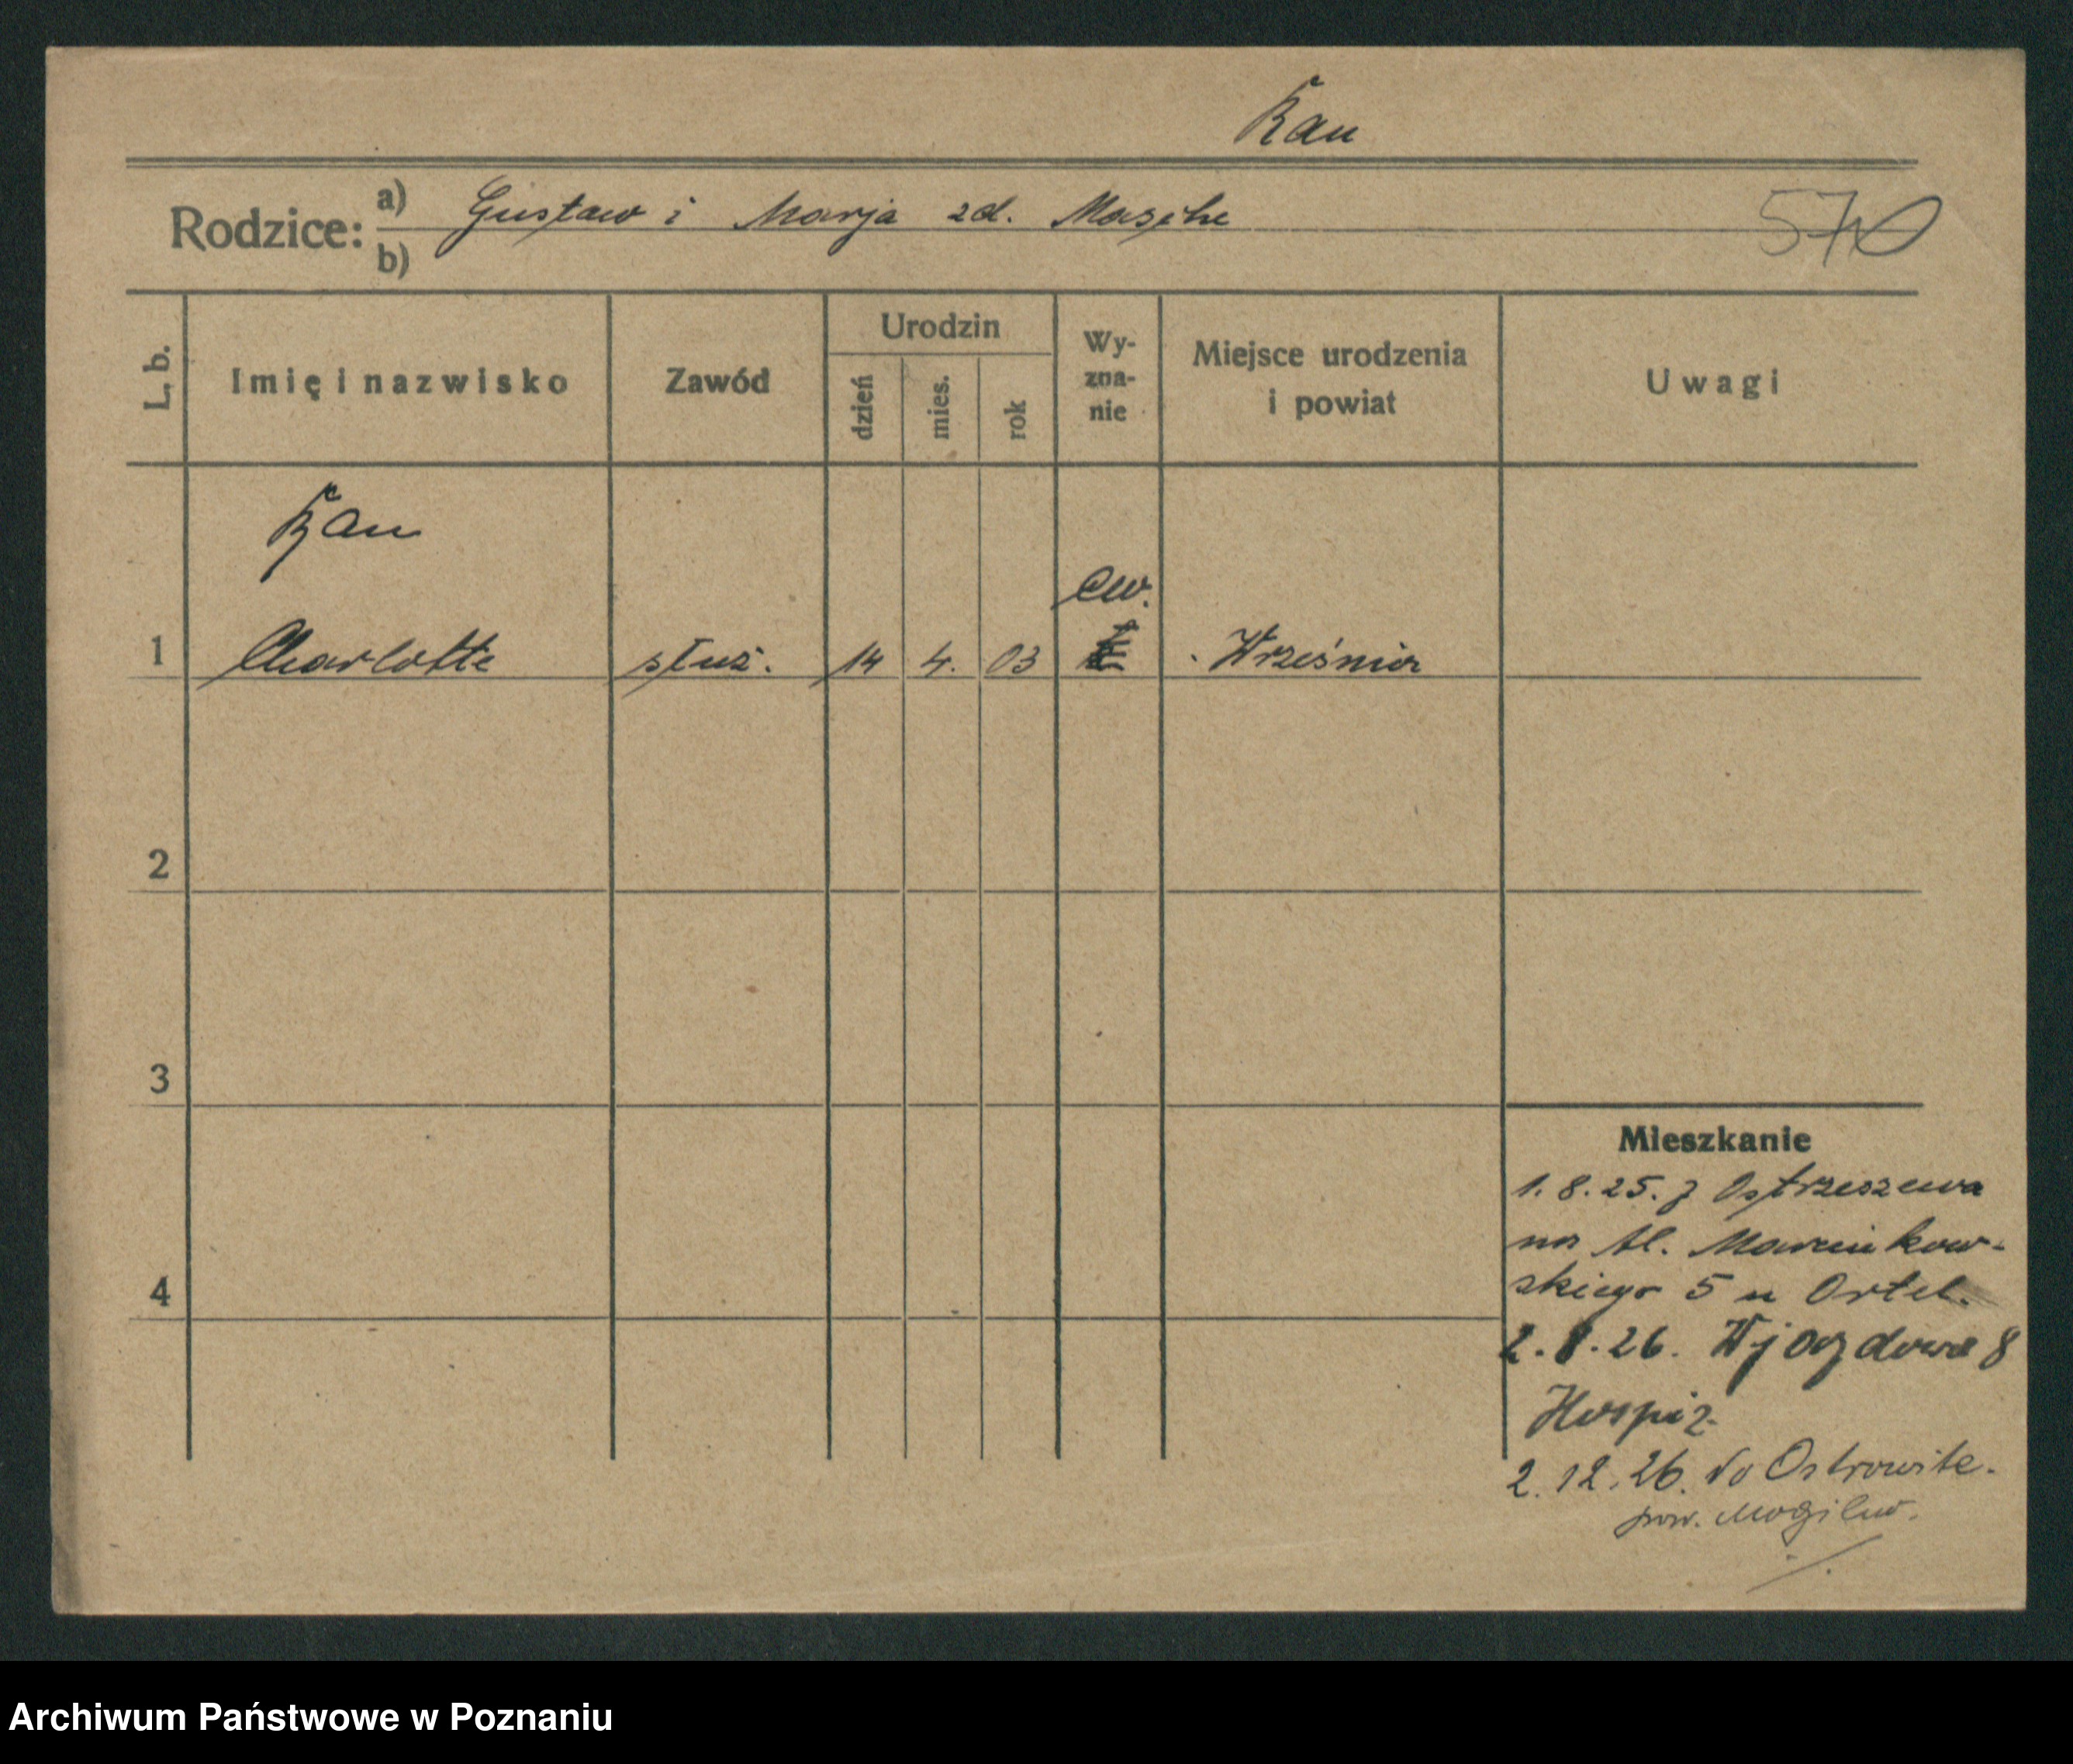 Rau
Rodzice: a) Gustaw i Marja zd. Masche
b)
570
L. b. Imię i nazwisko Zawód Urodzin dzień mies. rok Wy-zna-nie Miejsce urodzenia i powiat Uwagi
Rau
ew.
1 Charlotte służ. 14 4. 03 Września
2
3
4
Mieszkanie
1.8.25. z Ostrzeszewa
na Al. Marcinkow-
skiego 5 u Ortel.
2.8.26. Wjazdowa 8
Hospiz
2.12.26. do Ostrowite.
pow. Mogilno.
Archiwum Państwowe w Poznaniu